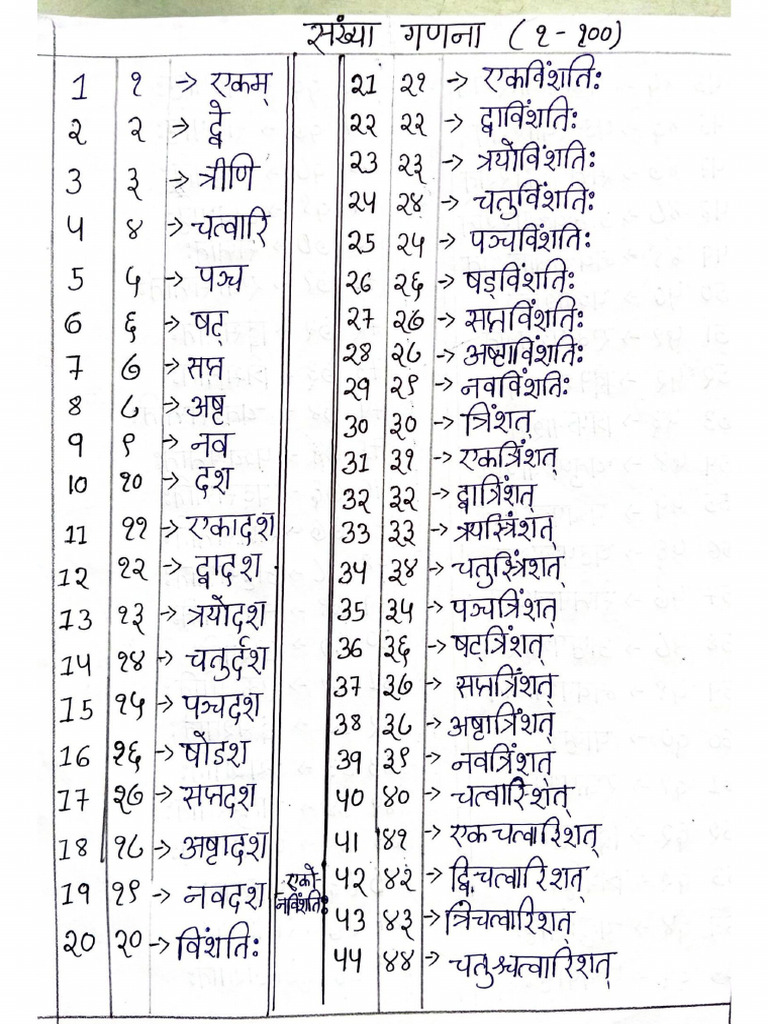 संख्या गणना (१-१००)
1 १ → एकम्
2 २ → द्वे
3 ३ → त्रीणि
4 ४ → चत्वारि
5 ५ → पञ्च
6 ६ → षट्
7 ७ → सप्त
8 ८ → अष्ट
9 ९ → नव
10 १० → दश
11 ११ → एकादश
12 १२ → द्वादश
13 १३ → त्रयोदश
14 १४ → चतुर्दश
15 १५ → पञ्चदश
16 १६ → षोडश
17 १७ → सप्तदश
18 १८ → अष्टादश
19 १९ → नवदश एको-
नविंशतिः
20 २० → विंशतिः
21 २१ → एकविंशतिः
22 २२ → द्वाविंशतिः
23 २३ → त्रयोविंशतिः
24 २४ → चतुविंशतिः
25 २५ → पञ्चविंशतिः
26 २६ → षड्विंशतिः
27 २७ → सप्तविंशतिः
28 २८ → अष्टाविंशतिः
29 २९ → नवविंशतिः
30 ३० → त्रिंशत्
31 ३१ → एकत्रिंशत्
32 ३२ → द्वात्रिंशत्
33 ३३ → त्रयस्त्रिंशत्
34 ३४ → चतुस्त्रिंशत्
35 ३५ → पञ्चत्रिंशत्
36 ३६ → षट्त्रिंशत्
37 ३७ → सप्तत्रिंशत्
38 ३८ → अष्टात्रिंशत्
39 ३९ → नवत्रिंशत्
40 ४० → चत्वारिंशत्
41 ४१ → एकचत्वारिशत्
42 ४२ → द्विचत्वारिशत्
43 ४३ → त्रिचत्वारिशत्
44 ४४ → चतुश्चत्वारिशत्